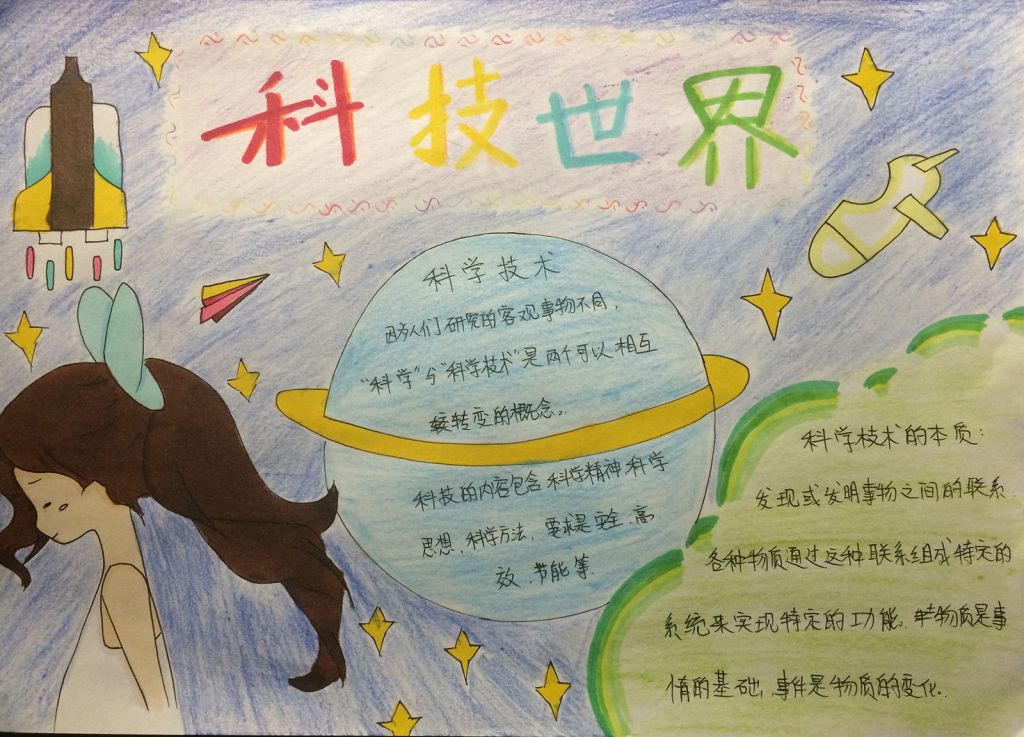 科技世界
科学技术
因为人们研究的客观事物不同，
“科学”与“科学技术”是两个可以相互
较转变的概念。
科技的内容包含科学精神科学
思想、科学方法，要求是安全、高
效、节能等
科学技术的本质：
发现或发明事物之间的联系
各种物质通过这种联系组成特定的
系统来实现特定的功能。物质是事
情的基础，事件是物质的变化。